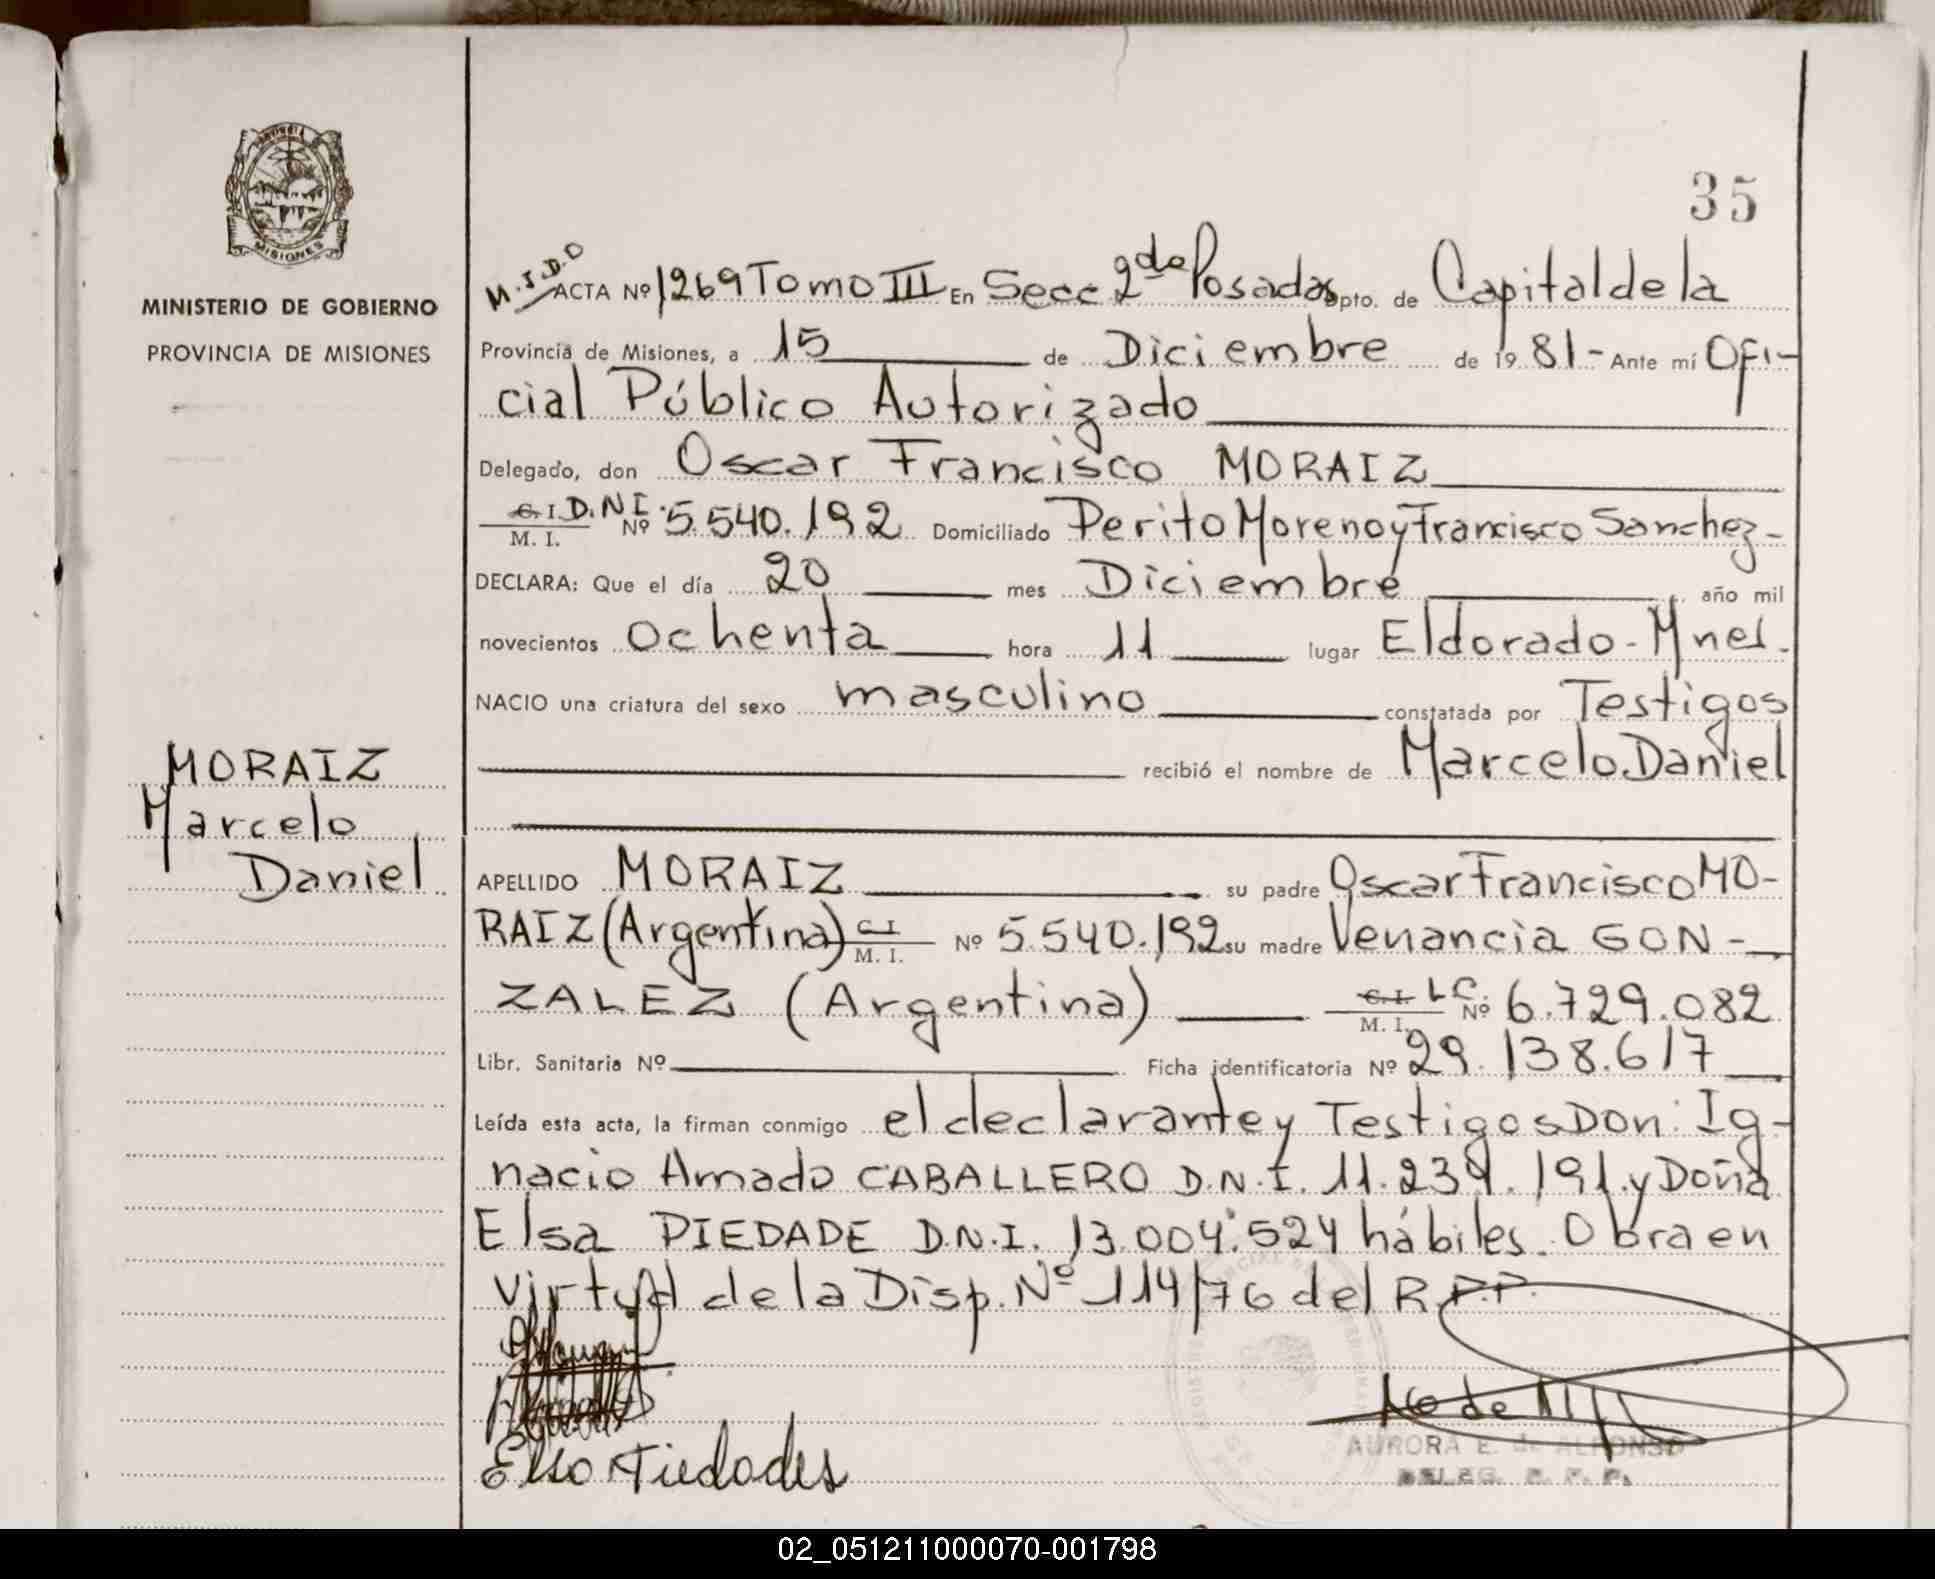 PROVINCIA
MISIONES
MINISTERIO DE GOBIERNO
PROVINCIA DE MISIONES
35
M.I.D.O
ACTA Nº 1269 Tomo III En Secc 2da Posadas Dpto. de Capital de la
Provincia de Misiones, a 15 de Diciembre de 19 81- Ante mí Ofi-
cial Público Autorizado
Delegado, don Oscar Francisco MORAIZ
C.I. D.N.I. M. I. Nº 5.540.192 Domiciliado Perito Moreno y Francisco Sanchez-
DECLARA: Que el día 20 mes Diciembre año mil
novecientos ochenta hora 11 lugar Eldorado-Mnes.
NACIO una criatura del sexo masculino constatada por Testigos
recibió el nombre de Marcelo Daniel
MORAIZ
Marcelo
Daniel
APELLIDO MORAIZ su padre Oscar Francisco MO-
RAIZ (Argentina) C.I. M. I. Nº 5.540.192 su madre Venancia GON-
ZALEZ (Argentina) C.I. LC. M. I. Nº 6.729.082
Libr. Sanitaria Nº Ficha identificatoria Nº 29.138.617
Leída esta acta, la firman conmigo el declarante y Testigos Don: Ig-
nacio Amado CABALLERO D.N.I. 11.239.191. y Doña
Elsa PIEDADE D.N.I. 13.004.524 hábiles. Obra en
virtud de la Disp. Nº 114/76 del R.P.P.
AURORA E. de ALFONSO
DELEG. R. P. P.
02_051211000070-001798